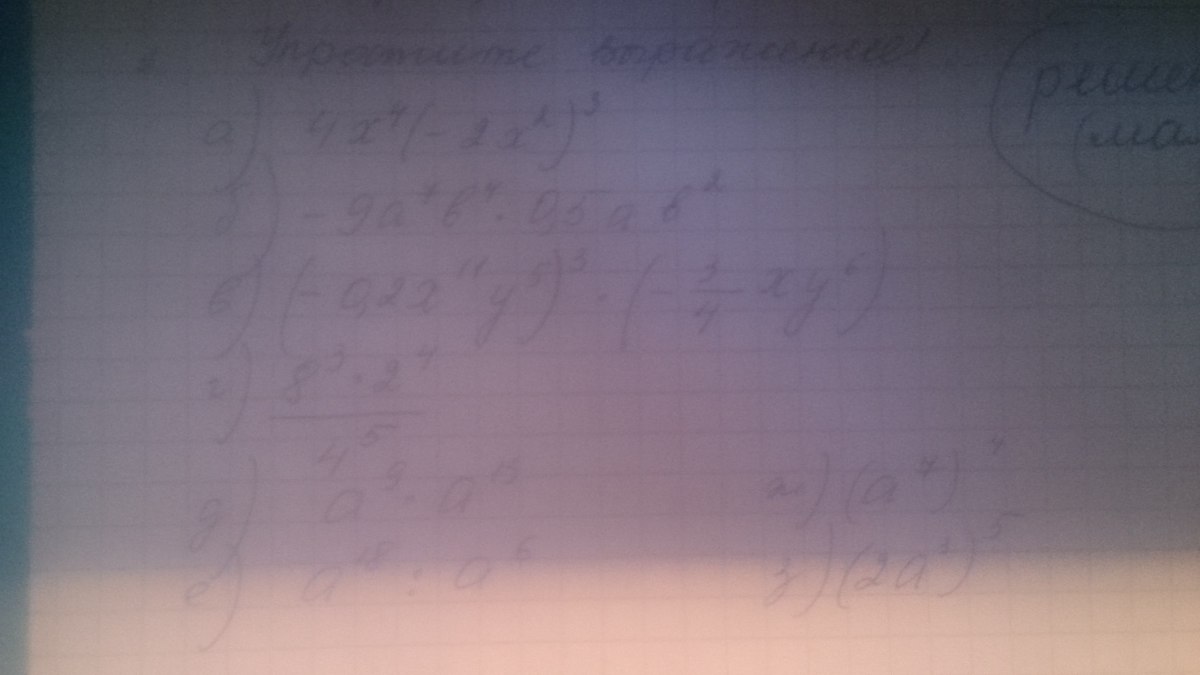 Упростите выражение!
а) 4x⁴(-2x²)³
б) -9a⁴b⁴·0,5ab²
в) (-0,2x¹¹y⁵)³·(-3/4 xy⁶)
г) 8³·2⁴/4⁵
д) a⁹·a¹³
е) a¹⁸:a⁶
ж) (a⁷)⁴
з) (2a²)⁵